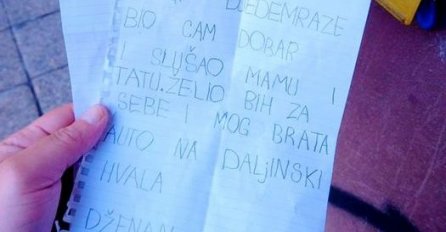 DJEDEMRAZE
BIO CAM DOBAR
I SLUŠAO MAMU I
TATU.ŽELIO BIH ZA
SEBE I MOG BRATA
AUTO NA DALjINSKI
HVALA
DŽENAN